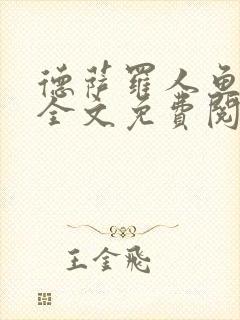 德萨罗人鱼
全文免费阅
王金飛